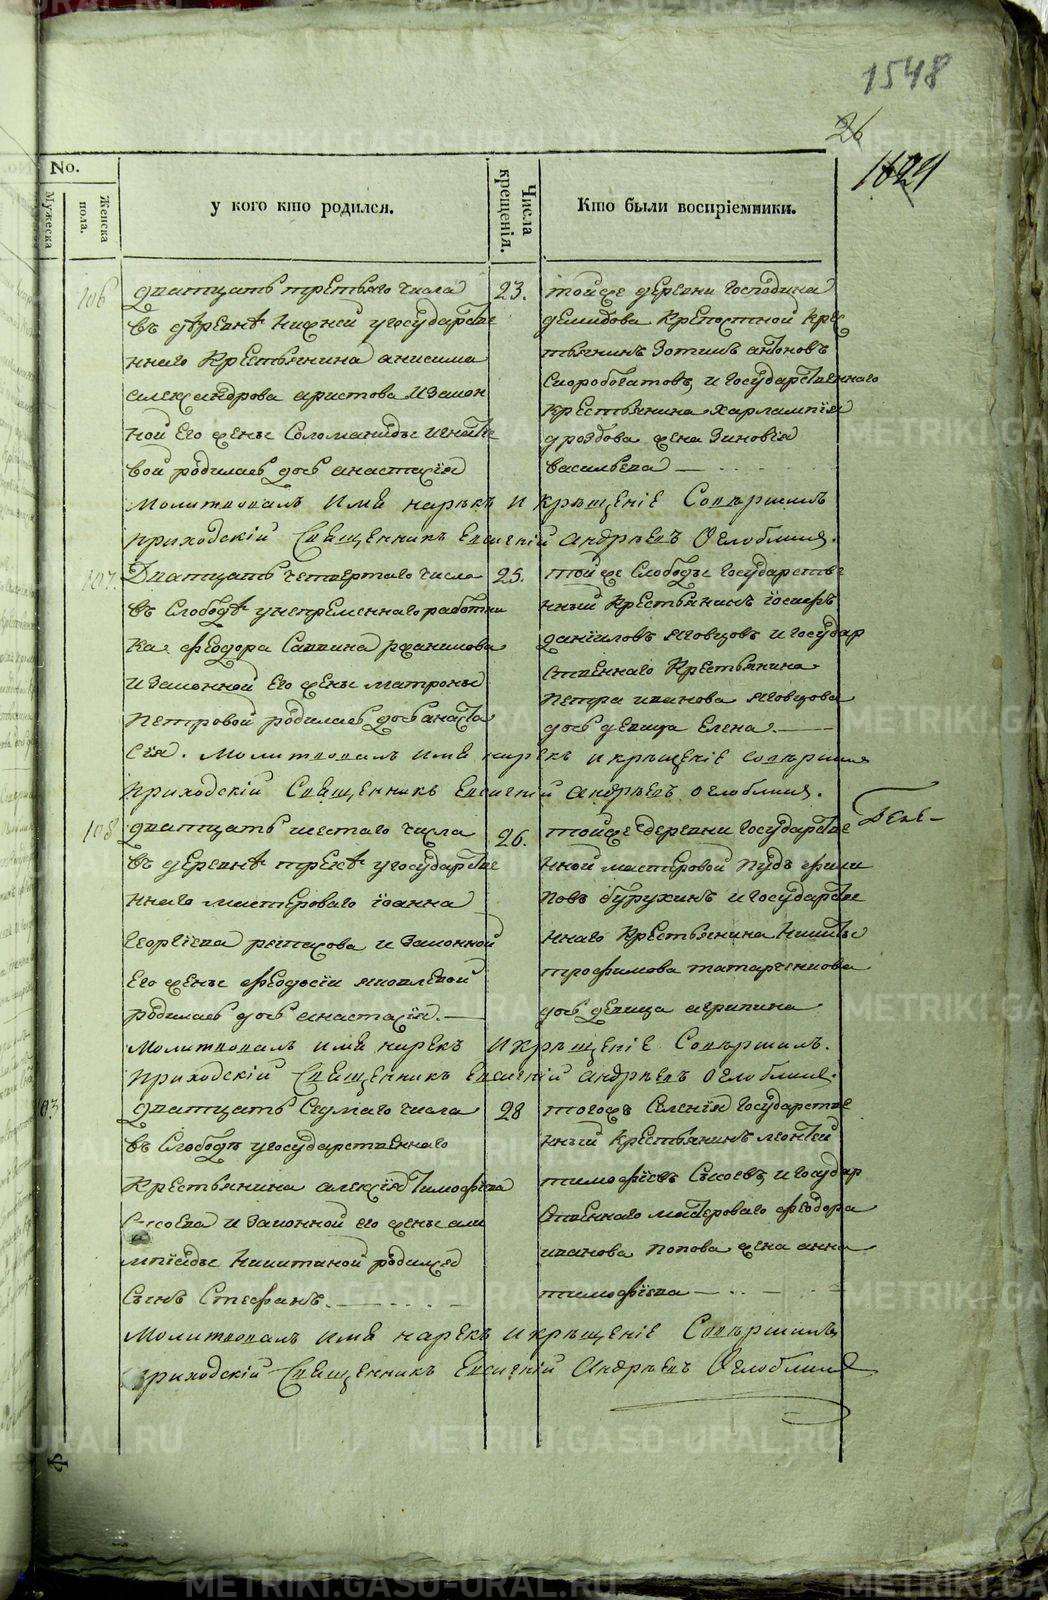 1548
26
1629
No.
Мужеска
Женска
пола.
у кого кто родился.
Числа
крещенія.
Кто были воспріемники.
106
дватцать третьяго числа
въ деревнѣ Нижней у государстве
ннаго крестьянина анисима
александрова аристова и закон
ной его жены Соломаниды игнатье
вой родилась дочь анастасія
23.
тойже деревни господина
демидова крепостной крес
тьянинъ Зотикъ антоновъ
Скоробогатовъ, и государственнаго
крестьянина харлампія
дроздова жена Зиновія
васильева
молитвовалъ имя нарѣкъ и крѣщеніе Совѣршилъ
приходскій Свѣщенникъ Евгеній андрѣевъ Оглоблинъ.
107.
Дватцать четвертаго числа
въ Слободѣ у непременнаго работни
ка феодора Саввина
и законной его жены матроны
Петровой родилась дочь анаста
сія. молитвовалъ имя нарекъ и крѣщеніе совѣршилъ
приходскій Свѣщенникъ Евгеній андрѣевъ оглоблинъ.
25.
тойже Слободы государстве
нный крестьянинъ іосифъ
даніиловъ яговцовъ и государ
ственнаго крестьянина
петра иванова яговцова
дочь девица Елена.
108
дватцать шестаго числа
въ деревнѣ трекѣ у государстве
ннаго мастероваго іоанна
георгіева и законной
его жены феодосіи яковлевой
родилась дочь анастасія.
26.
тойже деревни государстве
нной мастеровой Пудъ фили
повъ бурухинъ и государстве
ннаго крестьянина никиты
трофимова татарченкова
дочь девица агрипина
молитвовалъ имя нарекъ и крѣщеніе Совѣршилъ.
приходскій Свѣщенникъ Евгеній андрѣевъ оглоблинъ.
103
дватцать Седмаго числа
въ Слободѣ у государственнаго
крестьянина алексія тимофѣева
Сысоева и законной его жены оли
мпіады Никитиной родился
Сынъ Стефанъ.
28
тогожъ Селенія государстве
нный крестьянинъ леонтей
тимофѣевъ Сысоевъ, и государ
ственнаго мастероваго феодора
иванова попова жена анна
тимофѣева
молитвовалъ имя нарекъ и крѣщеніе Совѣршилъ
приходскій Свѣщенникъ Евгеній Андрѣевъ Оглоблинъ
METRIKI.GASO-URAL.RU